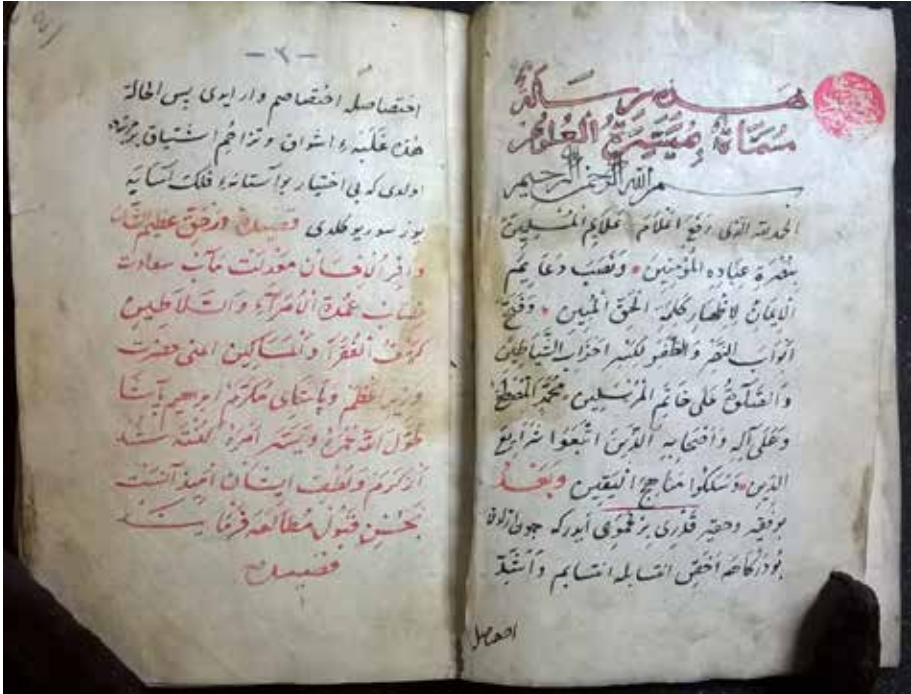 هذه رسالة
مسماة بميسرة العلوم
بسم الله الرحمن الرحيم
الحمد لله الذي رفع اعلام علايم المسلمين
بنصرة عباده المؤمنين ونصب دعايم
الايمان لاظهار كلمة الحق المبين وفتح
ابواب النصر والظفر لكسر احزاب الشياطين
والصلوة على خاتم المرسلين محمد المصطفى
وعلى آله واصحابه الذين اتبعوا شرايع
الدين وسلكوا مناهج اليقين وبعد
بو فقير وحقير قدرى پر قصورى ايدركه چون
بو دركاهه اخص انتسابله انتسابم واشد
اختصاص
- ٢ -
اختصاصله اختصاصم وار ايدى پس الحالة
هذه غلبهء اشواق وتزاحم اشتياق بر مرتبه
اولدى كه بى اختيار بو آستانهء فلك آسايه
يوز سوريو كلدى قصيده در حق عظيم الشان
وافر الاحسان معدلت مآب سعادت
نصاب عمدة الامراء والسلاطين
كهف الفقرا والمساكين اعنى حضرت
وزير اعظم وپاشاى مكرم ابرهيم پاشا
طول الله عمره ويسر امره كفته شد
از كرم ولطف ايشان اميد آنست
بحسن قبول مطالعه فرمايند
قصيده